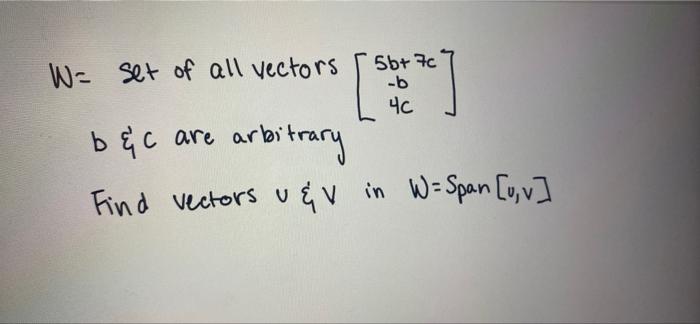 W= set of all vectors [ 5b+7c
-b
4c ]
b & c are arbitrary
Find vectors u & v in W=Span[u,v]